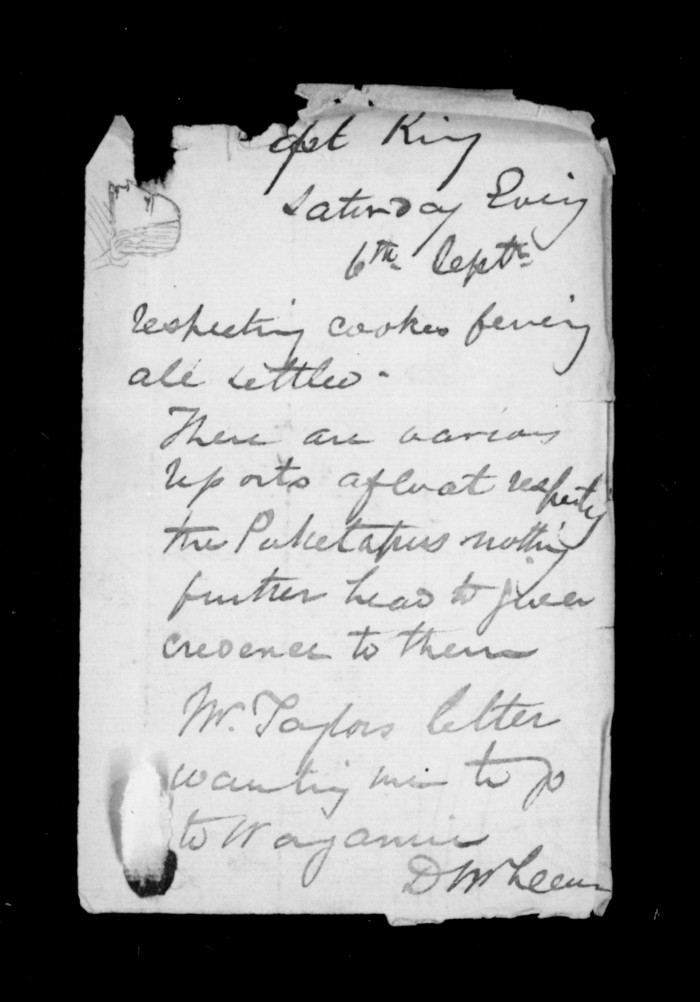 Capt King
Saturday Eving
6th Septr
respecting cookes fencing
all settled -
There are various
reports afloat respecting
the Puketapus nothing
further head to give
credence to them
Mr. Taylors letter
wanting me to go
to Wanganui
D McLean